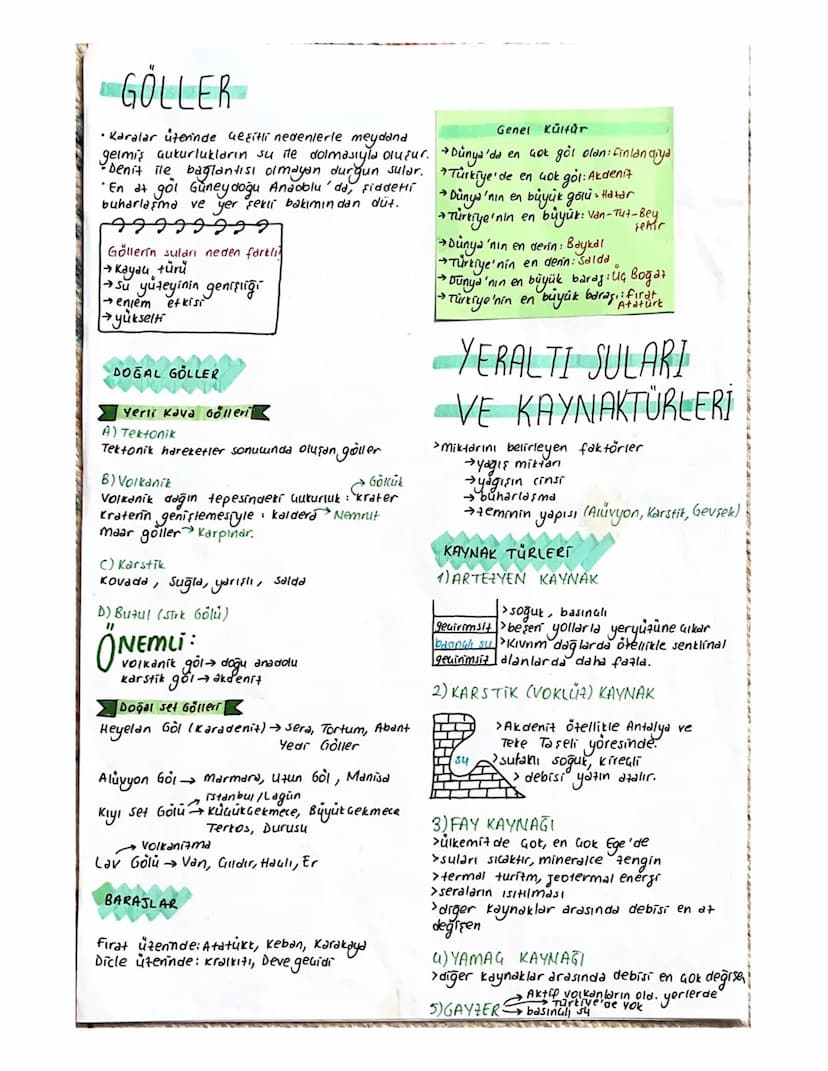 GÖLLER
• Karalar üzerinde çeşitli nedenlerle meydana
gelmiş çukurlukların su ile dolmasıyla oluşur.
• Deniz ile bağlantısı olmayan durgun sular.
• En az göl Güneydoğu Anadolu'da, şiddetli
buharlaşma ve yer şekli bakımından düz.
Göllerin suları neden farklı?
→ Kayaç türü
→ su yüzeyinin genişliği
→ enlem etkisi
→ yükselti
DOĞAL GÖLLER
Yerli Kaya Gölleri
A) Tektonik
Tektonik hareketler sonucunda oluşan göller
B) Volkanik → Gölcük
Volkanik dağın tepesindeki çukurluk : krater
kraterin genişlemesiyle : kaldera → Nemrut
maar göller → Karpınar.
C) Karstik
Kovada, Suğla, yarışlı, salda
D) Buzul (sirk Gölü)
ÖNEMLİ:
volkanik göl → doğu anadolu
karstik göl → akdeniz
Doğal set Gölleri
Heyelan Göl (Karadeniz) → Sera, Tortum, Abant
Yedi Göller
Alüvyon Göl → Marmara, Uzun Göl, Manisa
→ istanbul/Lagün
Kıyı set Gölü → Küçükçekmece, Büyükçekmece
Terkos, Durusu
→ volkanizma
Lav Gölü → Van, Çıldır, Haçlı, Er
BARAJLAR
Fırat üzerinde: Atatürk, Keban, Karakaya
Dicle üzerinde: Kralkızı, Devegeçidi
Genel Kültür
→ Dünya'da en çok göl olan: Finlandiya
→ Türkiye'de en çok göl: Akdeniz
→ Dünya'nın en büyük gölü: Hazar
→ Türkiye'nin en büyük: Van-Tuz-Bey
şehir
→ Dünya'nın en derin: Baykal
→ Türkiye'nin en derin: Salda
→ Dünya'nın en büyük baraj: Üç Boğaz
→ Türkiye'nin en büyük barajı: Fırat
Atatürk
YERALTI SULARI
VE KAYNAKTÜRLERİ
> Miktarını belirleyen faktörler
→ yağış miktarı
→ yağışın cinsi
→ buharlaşma
→ zeminin yapısı (Alüvyon, Karstik, Gevşek)
KAYNAK TÜRLERİ
1) ARTEZYEN KAYNAK
geçirimsiz
basınçlı su
geçirimsiz
> soğuk, basınçlı
> beşeri yollarla yeryüzüne çıkar
> Kıvrım dağlarda özellikle senklinal
alanlarda daha fazla.
2) KARSTİK (VOKLÜZ) KAYNAK
su
> Akdeniz özellikle Antalya ve
Teke Taşeli yöresinde.
> suları soğuk, kireçli
> debisi yazın azalır.
3) FAY KAYNAĞI
> ülkemizde çok, en çok Ege'de
> suları sıcaktır, mineralce zengin
> termal turizm, jeotermal enerji
> seraların ısıtılması
> diğer kaynaklar arasında debisi en az
değişen
4) YAMAÇ KAYNAĞI
> diğer kaynaklar arasında debisi en çok değişen
5) GAYZER → Aktif volkanların old. yerlerde
→ Türkiye'de yok
→ basınçlı su